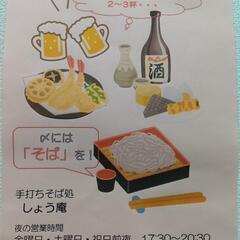 2〜3杯…
酒
〆には
「そば」を!
手打ちそば処
しょう庵
夜の営業時間
金曜日・土曜日・祝日前夜 17:30〜20:30